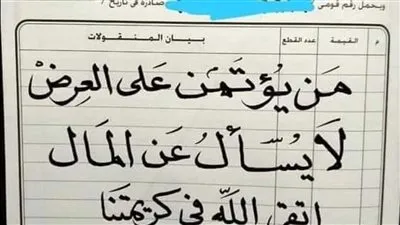 ويحمل رقم قومى صادرة فى تاريخ /
م القيمة عدد القطع بيان المنقولات
مَن يُؤتَمَن عَلى العِرضْ
لَا يُسْأَلُ عَن المَال
اتقِ اللَّه فى كريمتنَا